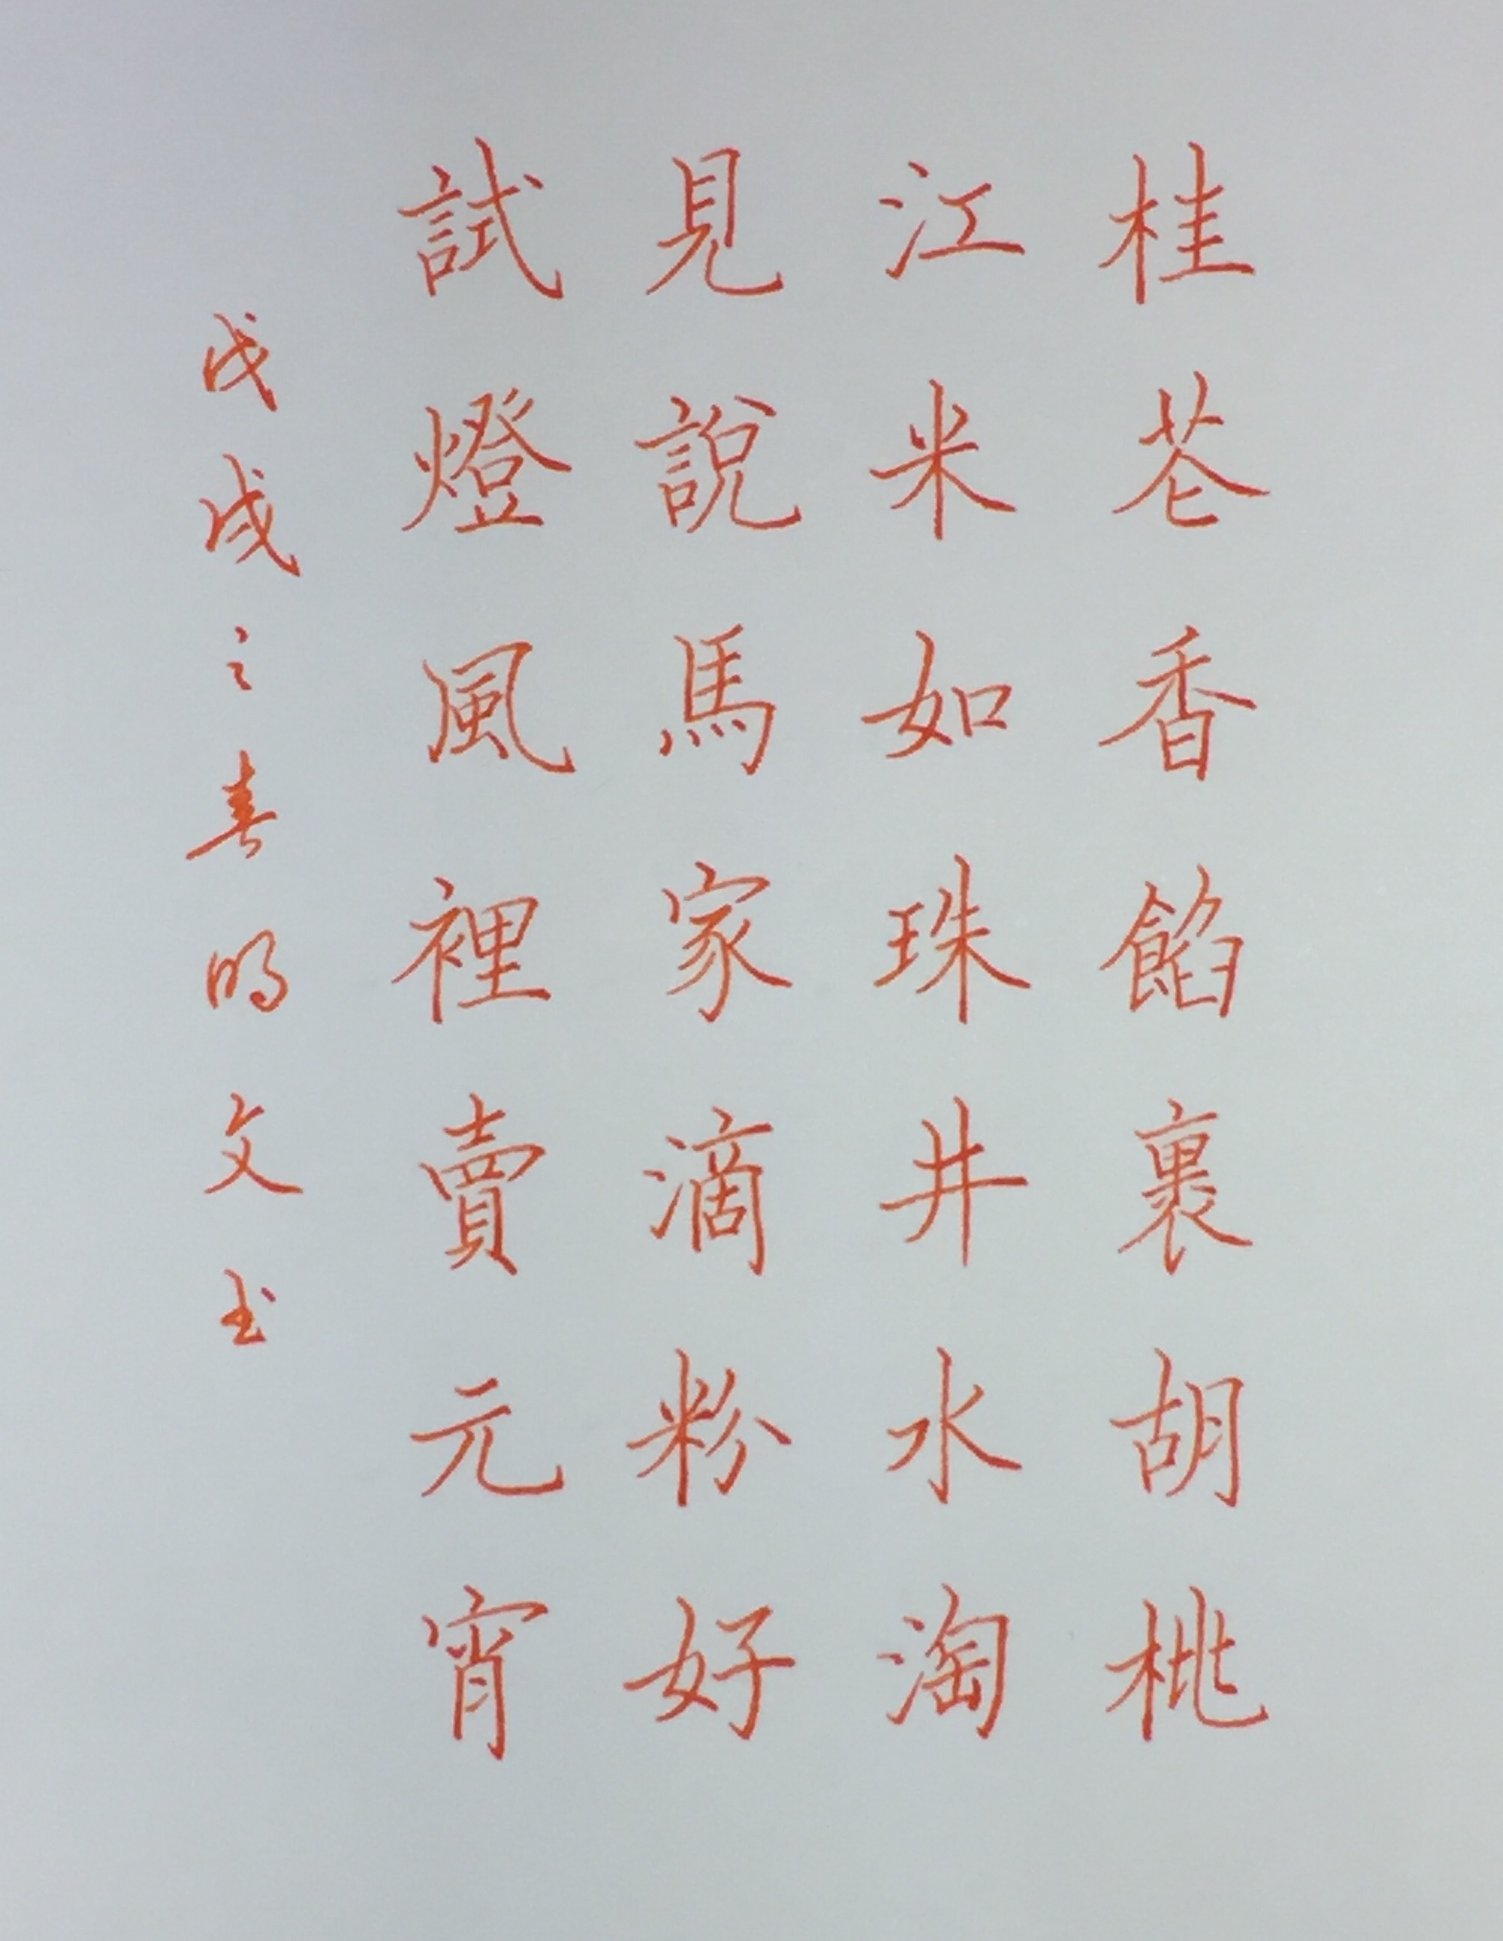 桂花香餡裹胡桃
江米如珠井水淘
見說馬家滴粉好
試燈風裡賣元宵
戊戌之春明文书